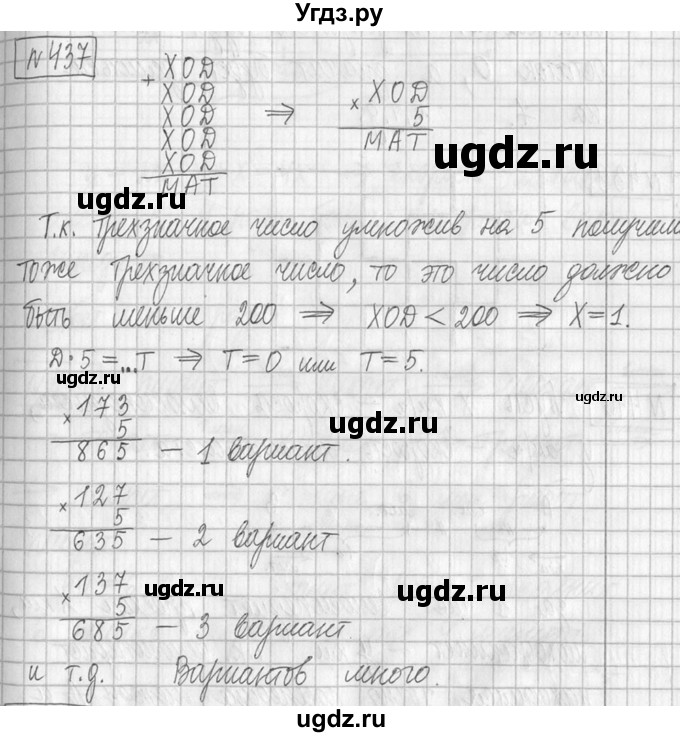 Угдз.ру
№437
+ ХОД
ХОД
ХОД
ХОД
ХОД
МАТ
⇒
× ХОД
5
МАТ
ugdz.ru
ugdz.ru
Т.к. трехзначное число умножив на 5 получим
тоже трехзначное число, то это число должно
быть меньше 200 ⇒ ХОД < 200 ⇒ Х=1.
Д·5 = ...Т ⇒ Т=0 или Т=5.
ugdz.ru
ugdz.ru
ugdz.ru
× 173
5
865 – 1 вариант.
× 127
5
635 – 2 вариант.
× 137
5
685 – 3 вариант.
ugdz.ru
ugdz.ru
и т.д. Вариантов много.
ugdz.ru
ugdz.ru